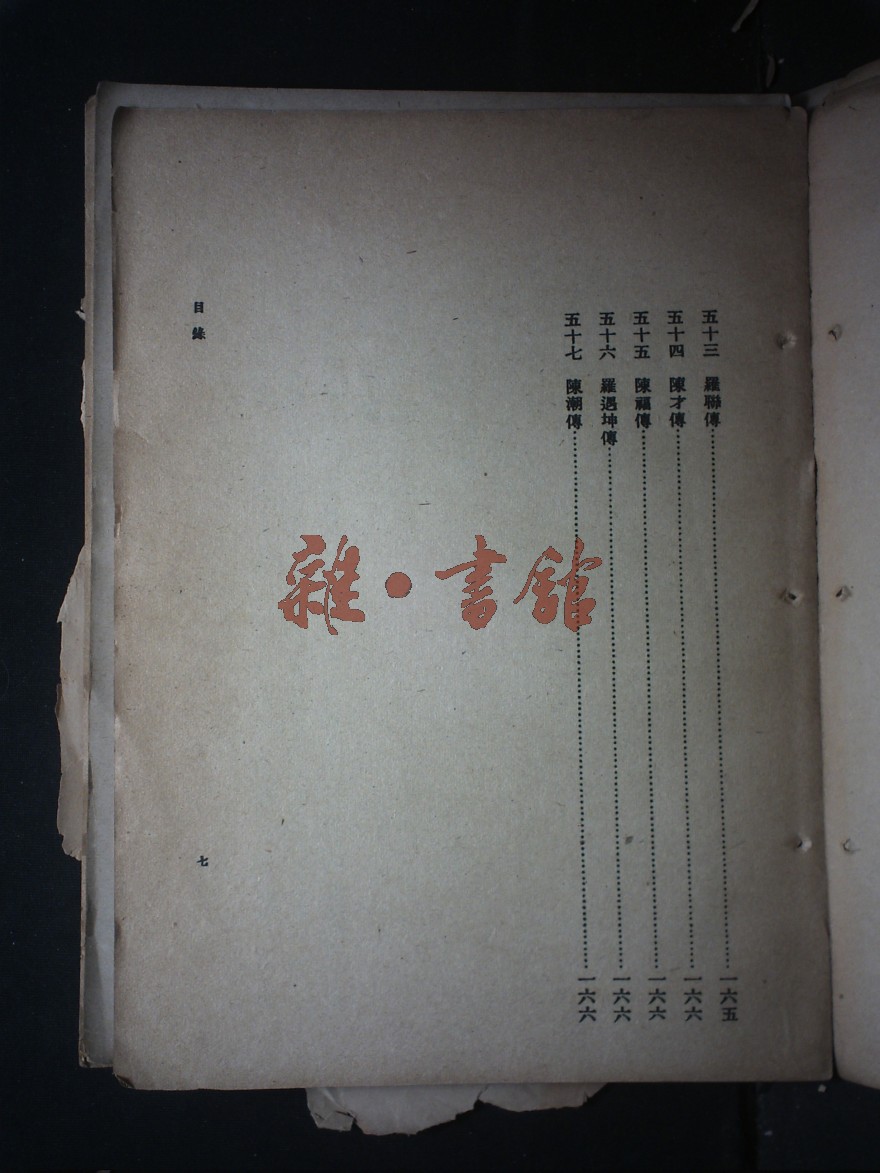 五十三 羅聯傳……一六五
五十四 陳才傳……一六六
五十五 陳福傳……一六六
五十六 羅遇坤傳……一六六
五十七 陳潮傳……一六六
目錄
七
雜·書館